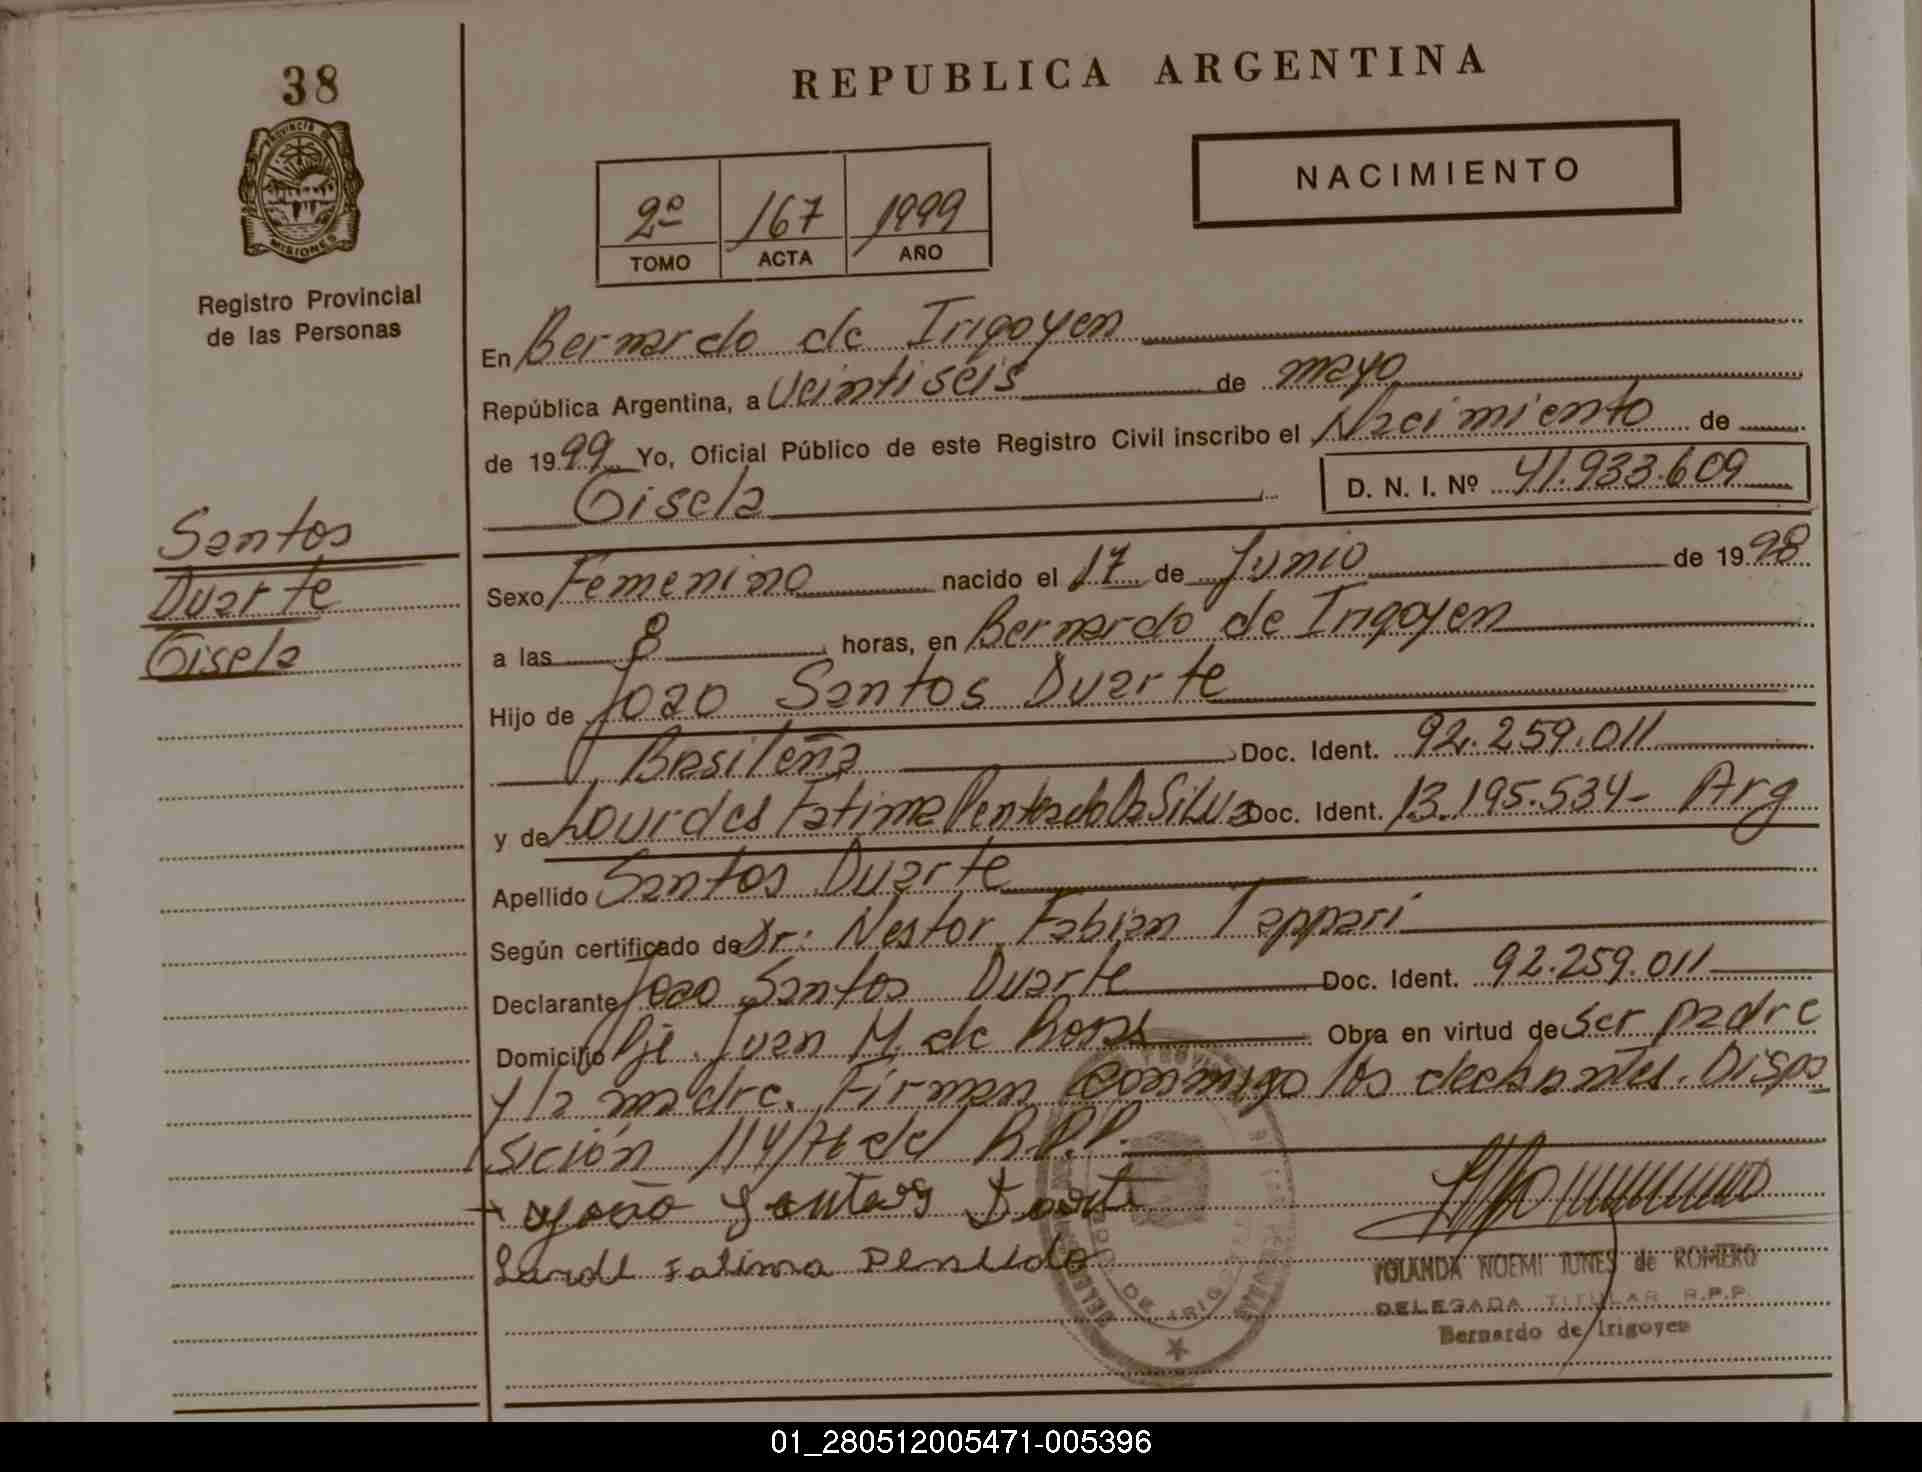 38
PROVINCIA DE
MISIONES
Registro Provincial
de las Personas
Santos
Duarte
Gisela
REPUBLICA ARGENTINA
NACIMIENTO
2º 167 1999
TOMO ACTA AÑO
En Bernardo de Irigoyen
República Argentina, a Veintiseis de mayo
de 1999 Yo, Oficial Público de este Registro Civil inscribo el Nacimiento de
Gisela D. N. I. Nº 41.933.609
Sexo Femenino nacido el 17 de Junio de 1998
a las 8 horas, en Bernardo de Irigoyen
Hijo de Joao Santos Duarte
Brasileña Doc. Ident. 92.259.011
y de Lourdes Fatima Penteado Da Silva Doc. Ident. 13.195.534- Arg
Apellido Santos Duarte
Según certificado de Dr. Nestor Fabian Tappari
Declarante Joao Santos Duarte Doc. Ident. 92.259.011
Domicilio Pje. Juan M. de Rosas Obra en virtud de ser padre
y la madre. Firman conmigo los declarantes. Dispo
sición 114/76 del R.P.P.
João Santos Duarte
Fatima
YOLANDA NOEMI IUNES de ROMERO
DELEGADA TITULAR R.P.P.
Bernardo de Irigoyen
01_280512005471-005396